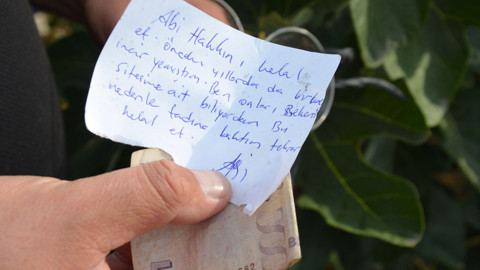 Abi Hakkını helal
et. önceki yıllarda da birkaç
incir yemiştim. Ben onları
sitesine ait biliyordum Bu
nedenle tadına baktım tekrar
helal et.